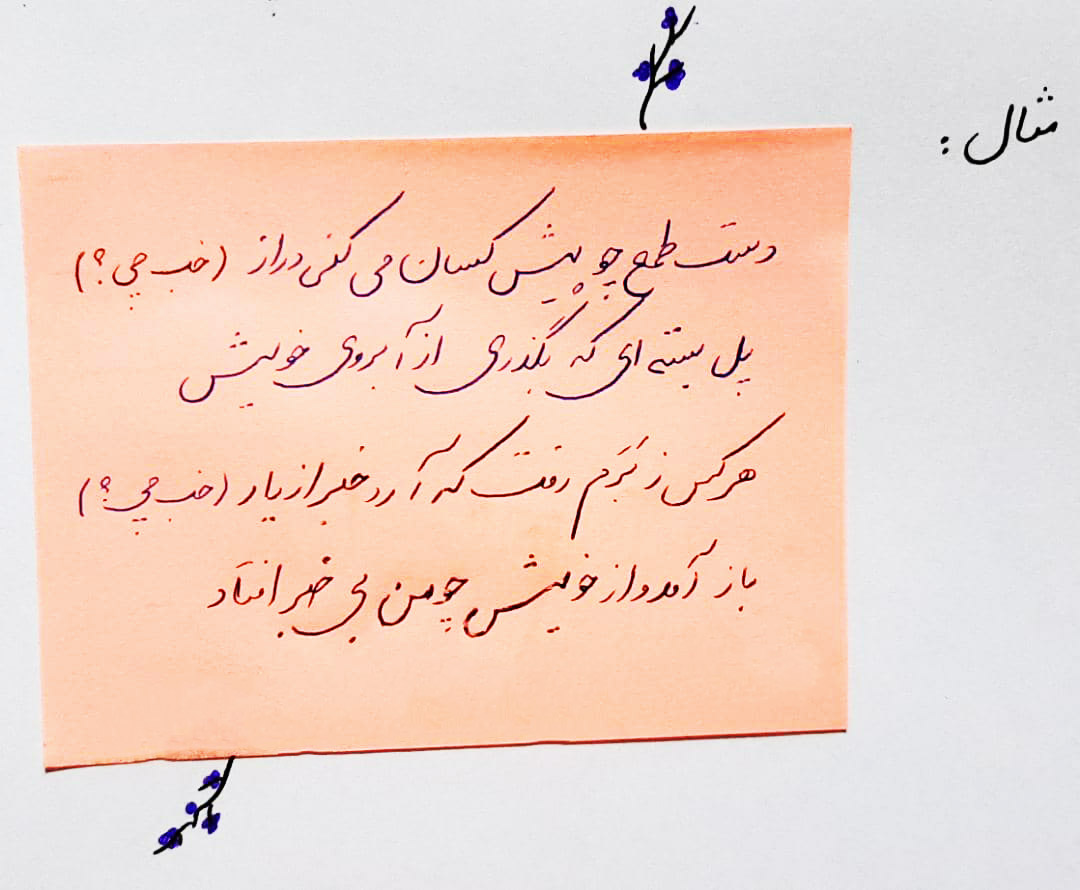 مثال :
دست طمع چو پیش کسان می کنی دراز (خب چی؟)
پل بسته ای که بگذری از آبروی خویش
هرکس ز بَرَم رفت که آرد خبر از یار (خب چی؟)
باز آمد و از خویش چو من بی خبر افتاد